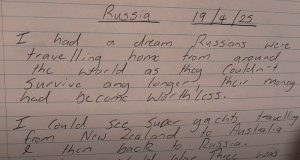 Russia 19/4/25
I had a dream, Russians were
travelling home from around
the world as they couldn't
survive any longer, their money
had become worthless.
I could see super yachts travelling
from New Zealand to Australia
& then back to Russia.
War There was